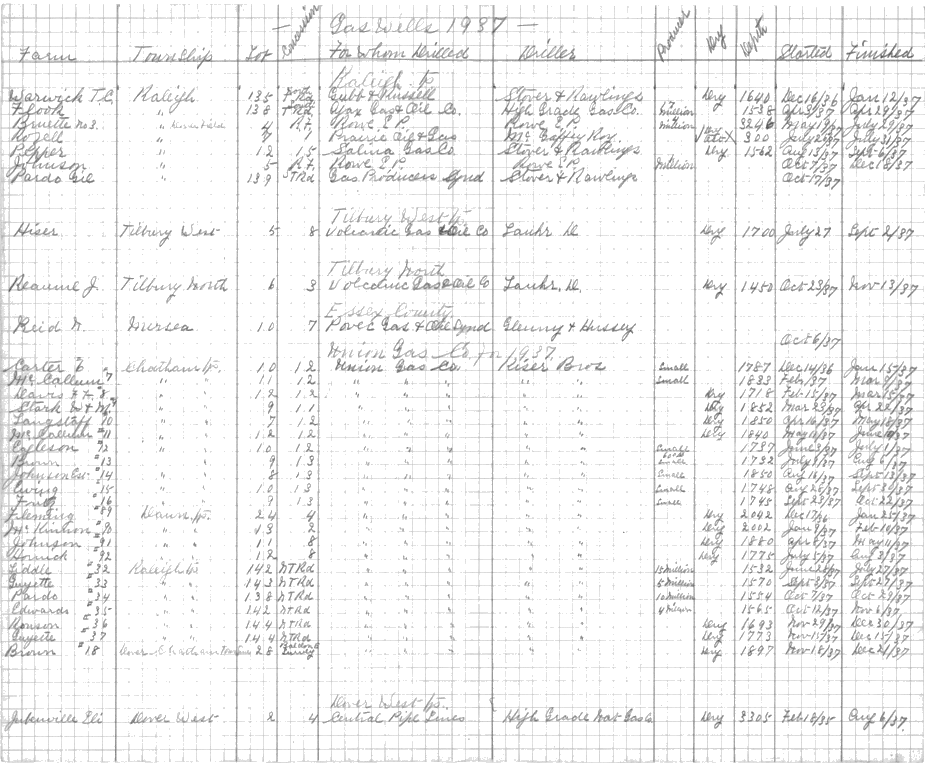 — Gas Wells 1937 —
Farm Township Lot Concession For Whom Drilled Driller Producer Dry Depth Started Finished
Raleigh Tp
Warwick T.C. Raleigh 135 Stover & Rawlings Dry 1640 Dec 16/36 Jan 12/37
Flook " 138 Gas & Oil Co. High Grade Gas Co. Million 1538 Apr 3/37 Apr 29/37
No 3. " 4 A.F. Rowe E.P. Rowe E.P. Million 3246 May 1/37 July 29/37
" 7 1 Prairie Oil & Gas Mc Caffey Roy 300 July 2/37 July 31/37
Pepper " 12 15 Salina Gas Co. Stover & Rawlings Dry 1562 Aug 13/37 Sept 6/37
Johnson " 5 A.F. Rowe E.P. Rowe E.P. Million Oct 7/37 Dec 18/37
Pardo Gil " 139 STRd Gas Producers Synd Stover & Rawlings Oct 17/37
Tilbury West Tp.
Hiser Tilbury West 5 8 Volcanic Gas & Oil Co Lauhr D Dry 1700 July 27 Sept 2/37
Tilbury North
Reaume J. Tilbury North 6 3 Volcanic Gas & Oil Co Lauhr. D. Dry 1450 Oct 23/37 Nov 13/37
Essex County.
Reid N. Mersea 10 7 Gas & Oil Synd Glenny & Hussey Oct 6/37
Union Gas Co. for 1937.
Carter E Chatham Tp. 10 12 Union Gas Co. Kiser Bros Small 1787 Dec 14/36 Jan 15/37
Mc Callum 7 " " 11 12 " " " " " Small 1833 Feb /37 Mar 9/37
Davis #8 " " 12 12 " " " " " Dry 1718 Feb 15/37 Mar 15/37
Stark W " " 9 11 " " " " " Dry 1852 Mar 23/37 Apr 22/37
Langstaff 10 " " 7 12 " " " " " Dry 1850 Apr 16/37 May 18/37
Mc Callum #11 " " 12 12 " " " " " Dry 1840 May 11/37 June /37
12 " " 10 12 " " " " " Small 1737 June 3/37 July 1/37
Brown #13 " " 9 13 " " " " " Small 1732 July 9/37 Aug 6/37
Johnson Est #14 " " 8 13 " " " " " Small 1850 Aug 11/37 Sept 13/37
Ewing #15 " " 10 13 " " " " " Small 1748 Aug 28/37 Sept 30/37
16 " " 9 13 " " " " " Small 1745 Sept 23/37 Oct 22/37
Fleming #89 Dawn Tp. 24 4 " " " " " Dry 2042 Dec 17/36 Jan 25/37
Mc Kinnon #90 " " 13 2 " " " " " Dry 2002 Jan 9/37 Feb 10/37
Johnson #91 " " 11 8 " " " " " Dry 1880 Apr 8/37 May 11/37
Hornick 92 " " 12 8 " " " " " Dry 1775 July 5/37 Aug 3/37
Liddle #32 Raleigh Tp 142 NTRd " " " " " 15 Million 1532 June 28/37 July 27/37
Guyette #33 " " 143 NTRd " " " " " 5 Million 1570 Sept 3/37 Sept 27/37
Pardo #34 " " 138 NTRd " " " " " 10 Million 1554 Oct 7/37 Oct 29/37
Edwards #35 " " 142 NTRd " " " " " 4 Million 1565 Oct 12/37 Nov 6/37
Ronson #36 " " 144 NTRd " " " " " Dry 1693 Nov 29/37 Dec 30/37
Guyette #37 " " 144 NTRd " " " " " Dry 1773 Nov 15/37 Dec 15/37
Brown #18 Dover & Chatham 28 Baldoon Survey " " " " " Dry 1897 Nov 18/37 Dec 21/37
Dover West Tp.
Jubenville Eli Dover West 2 4 Central Pipe Lines High Grade Nat Gas Co Dry 3305 Feb 18/35 Aug 6/37.